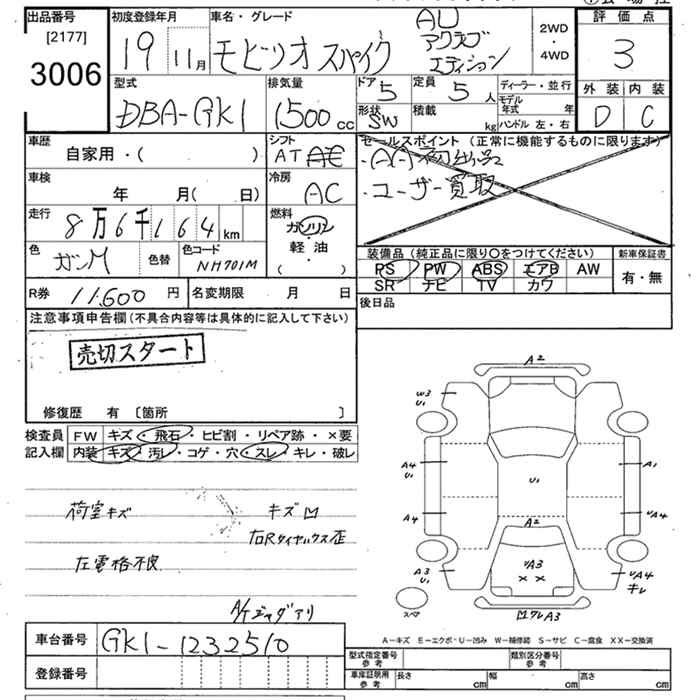 出品番号
[2177]
3006
初度登録年月
19 11月
車名・グレード
モビリオスパイク
AU
アクラブ
エディション
2WD
・
4WD
評価点
3
外装 内装
D C
型式
DBA-GK1
排気量
1500 cc
ドア 5
形状 SW
定員 5 人
積載 kg
ディーラー・並行
モデル年式 年
ハンドル 左・右
車歴
自家用・( )
シフト
AT
車検
年 月( 日)
冷房
AC
走行
8万6千164km
燃料
ガソリン
軽・油
( )
色
ガンM
色替
色コード
NH701M
セールスポイント(正常に機能するものに限ります)
・AA初出品
・ユーザー買取
装備品(純正品に限り○をつけてください)
PS PW ABS エアB AW
SR ナビ TV カワ
新車保証書
有・無
R券 11,600 円
名変期限 月 日
後日品
注意事項申告欄(不具合内容等は具体的に記入して下さい)
売切スタート
修復歴 有 〔箇所 〕
検査員
記入欄
FW キズ・飛石・ヒビ割・リペア跡・×要
内装 キズ・汚レ・コゲ・穴・スレ・キレ・破レ
荷室キズ
キズ凹
右Rタイヤハウス歪
左電格不良
A/Tジャダアリ
A2
W3
U1
A4
U1
A1
U1
A4
UA4
A2
A3
U1
UA3
××
UA4
キレ
スペア
凹ワレA3
A-キズ E-エクボ・U-凹み W-補修跡 S-サビ C-腐食 XX-交換済
車台番号
GK1-1232510
登録番号
型式指定番号
参考
類別区分番号
参考
車庫証明用
参考
長さ cm
幅 cm
高さ cm